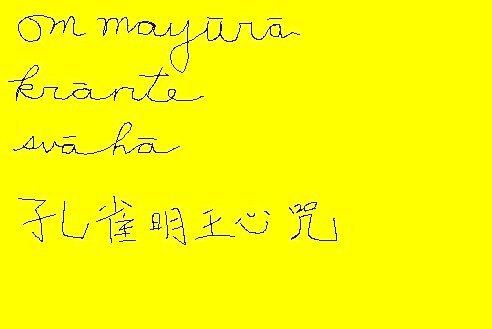 om mayūrā
krānte
svāhā
孔雀明王心咒